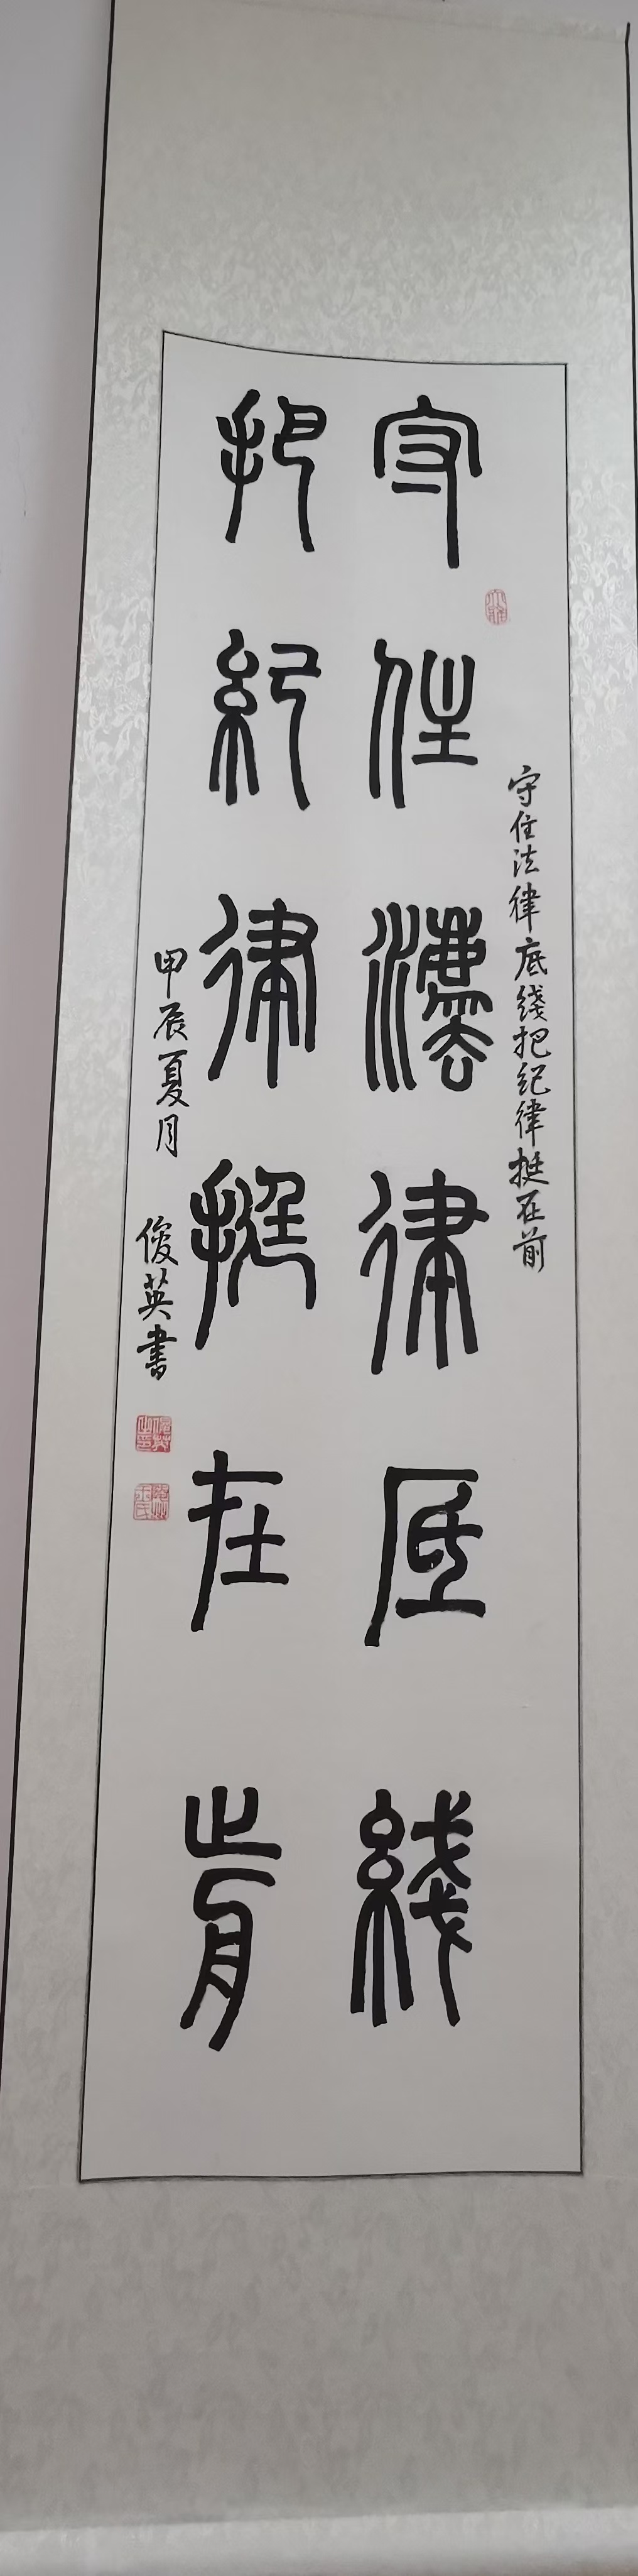 守住灋律底綫
把紀律挺在歬
守住法律底綫把纪律挺在前
甲辰夏月
俊英書